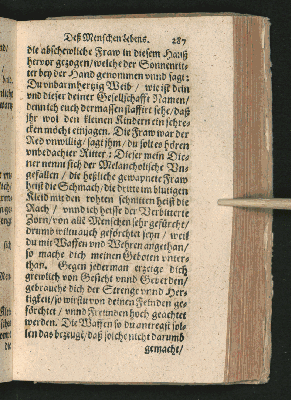 Deß Menschen lebens. 287
die abschewliche Fraw in diesem Hauß
hervor gezogen/ welche der Sonnenrit-
ter bey der Hand genommen vnnd sagt:
Du vnbarmhertzig Weib / wie ist dein
vnd dieser deiner Gesellschafft Namen/
denn ich euch dermassen staffirt sehe/ daß
jhr wol den kleinen Kindern ein schre-
cken möcht einjagen. Die Fraw war der
Red vnwillig/ sagt jhm / du solt es hören
vnbedachter Ritter: Dieser mein Die-
ner nennt sich der Melancholische Vn-
gefallen / die heßliche gewapnete Fraw
heist die Schmach/ die dritte im blutigen
Kleid mit den rohten schnitten heist die
Rach / vnnd ich heisse der Verbitterte
Zorn/ von alle Menschen sehr gefürcht/
drumb wiltu auch geförchtet seyn / weil
du mit Waffen vnd Wehren angethan/
so mache dich meinen Geboten vnter-
than. Gegen jederman erzeige dich
grewlich von Gesicht vnnd Geberden/
gebrauche dich der Strenge vnnd Her-
tigkeit/ so wirstu von deinen Feinden ge-
förchtet / vnnd Freunden hoch geachtet
werden. Die Waffen so du antregst sol-
len das bezeugt/ daß solche nicht darumb
gemacht/